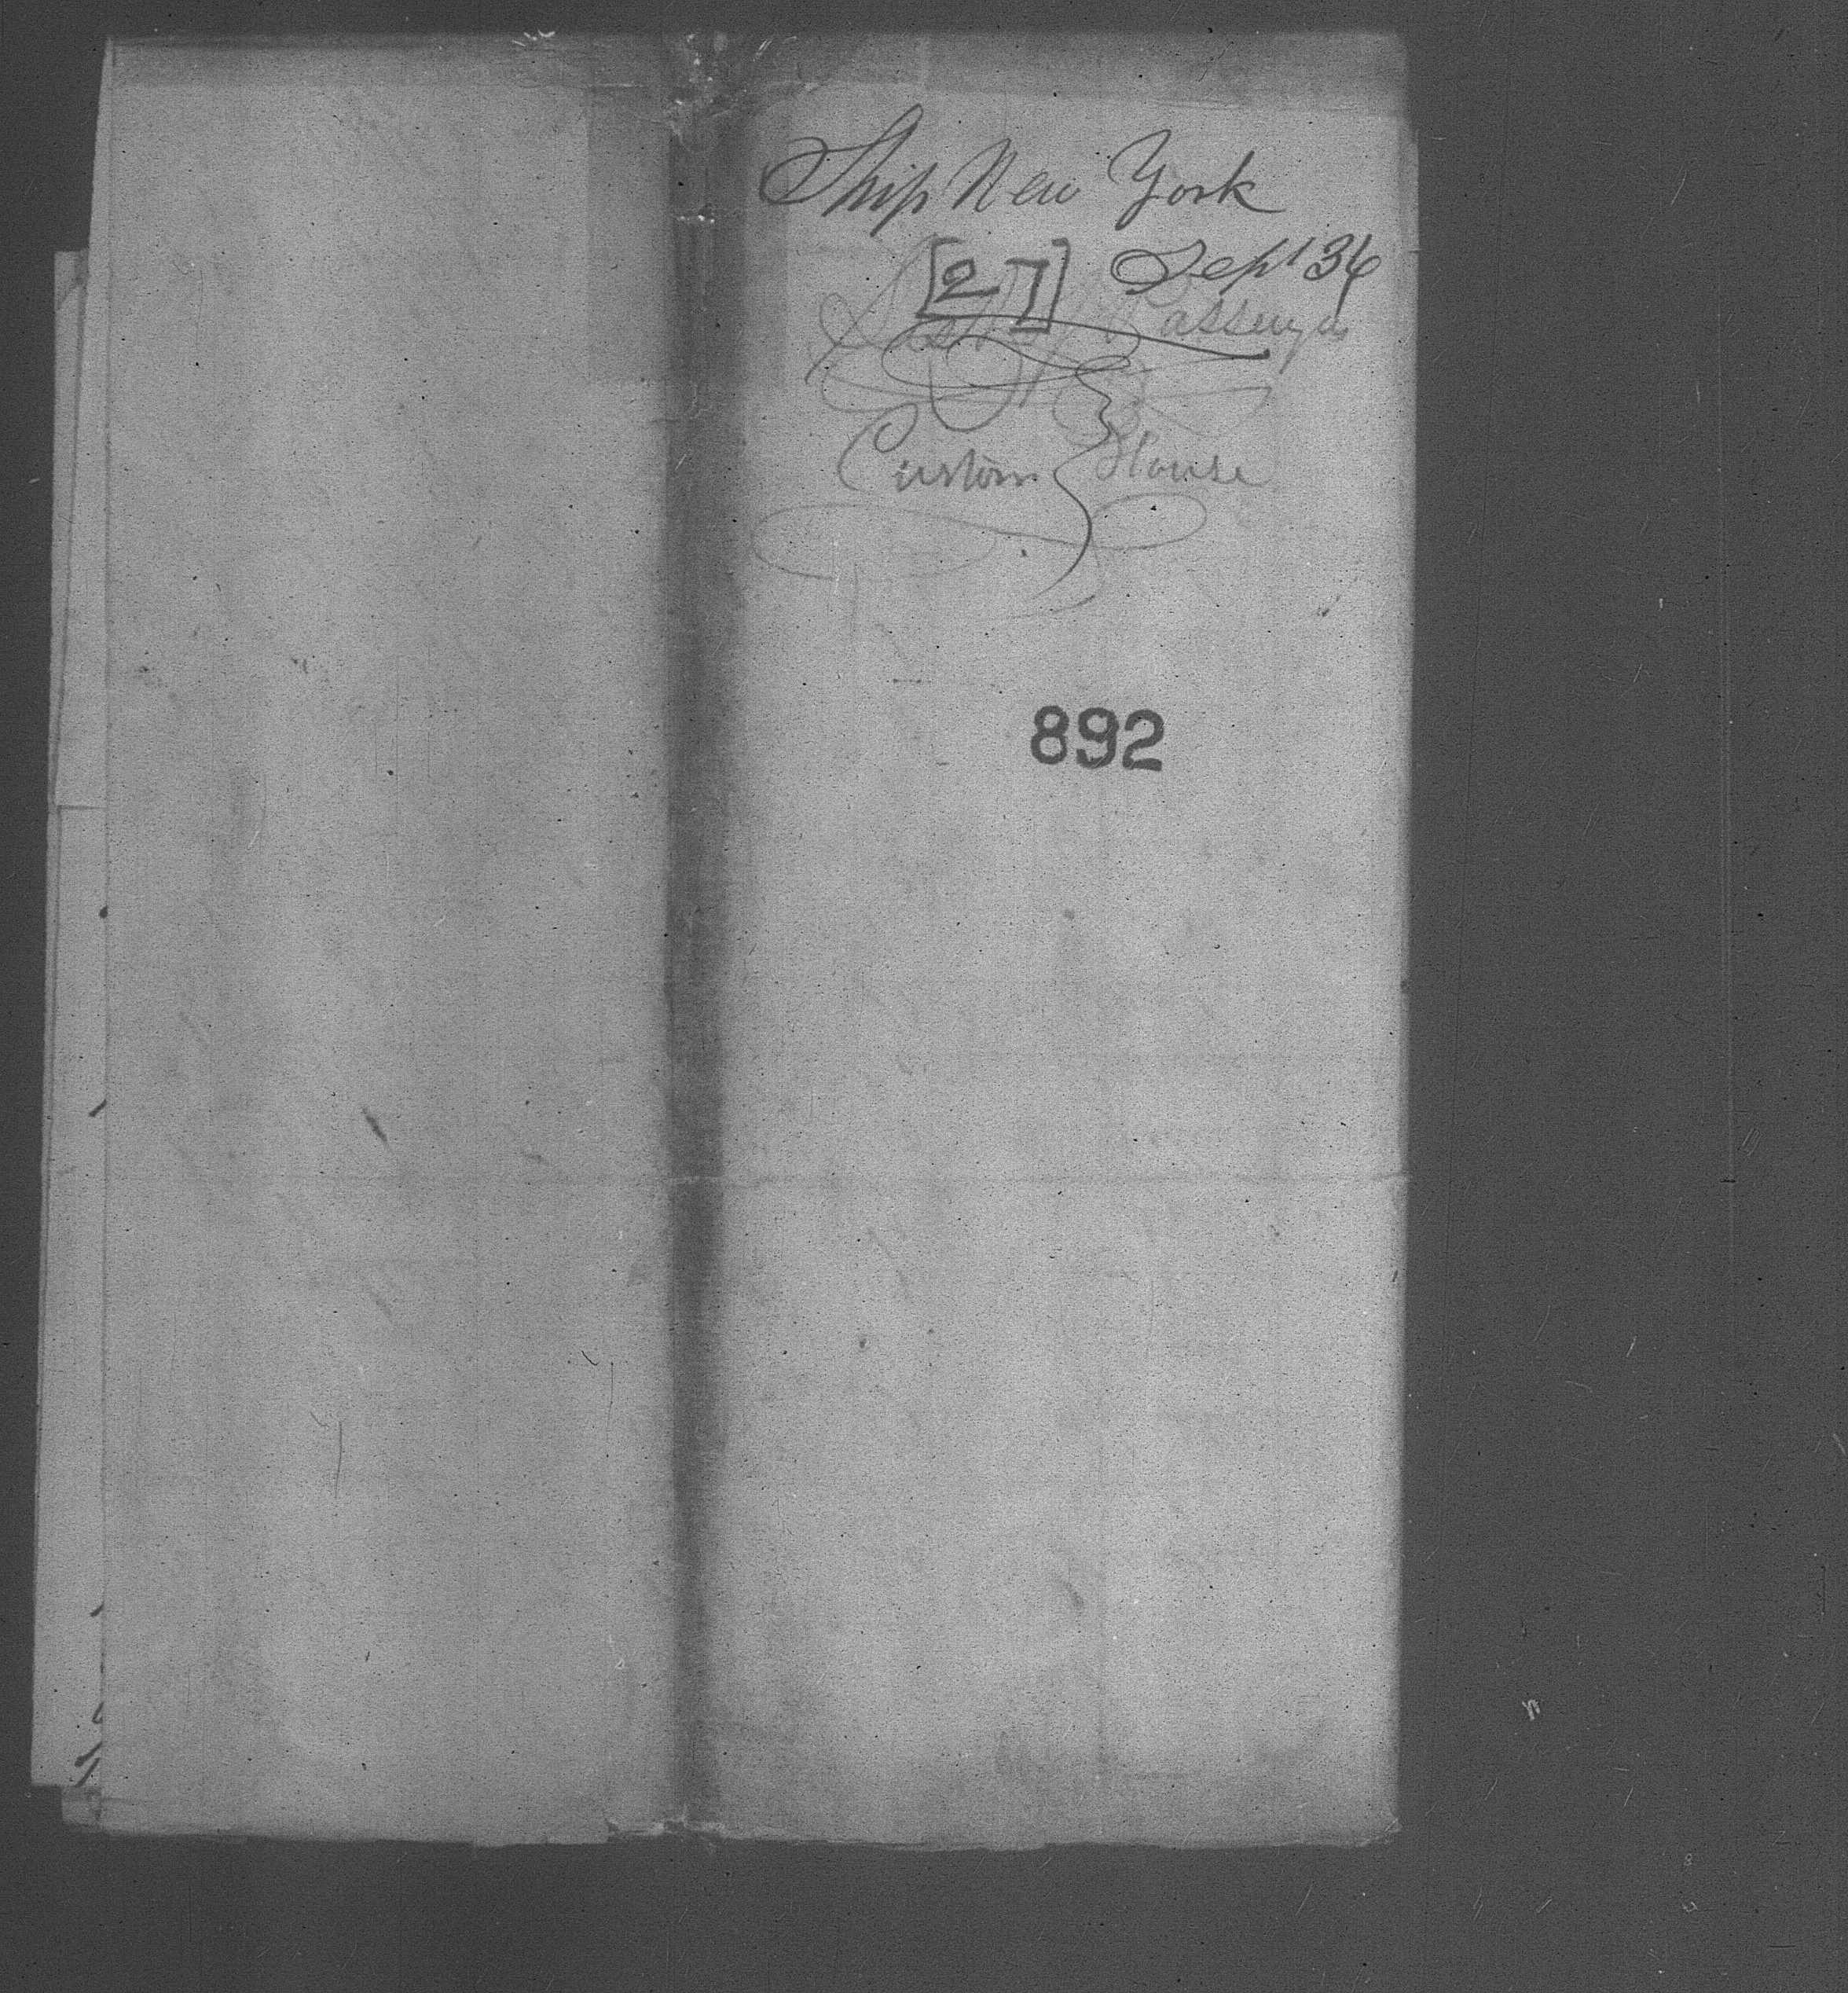 Ship New York
[27] Sept 36
List of Passengers
Custom House
892